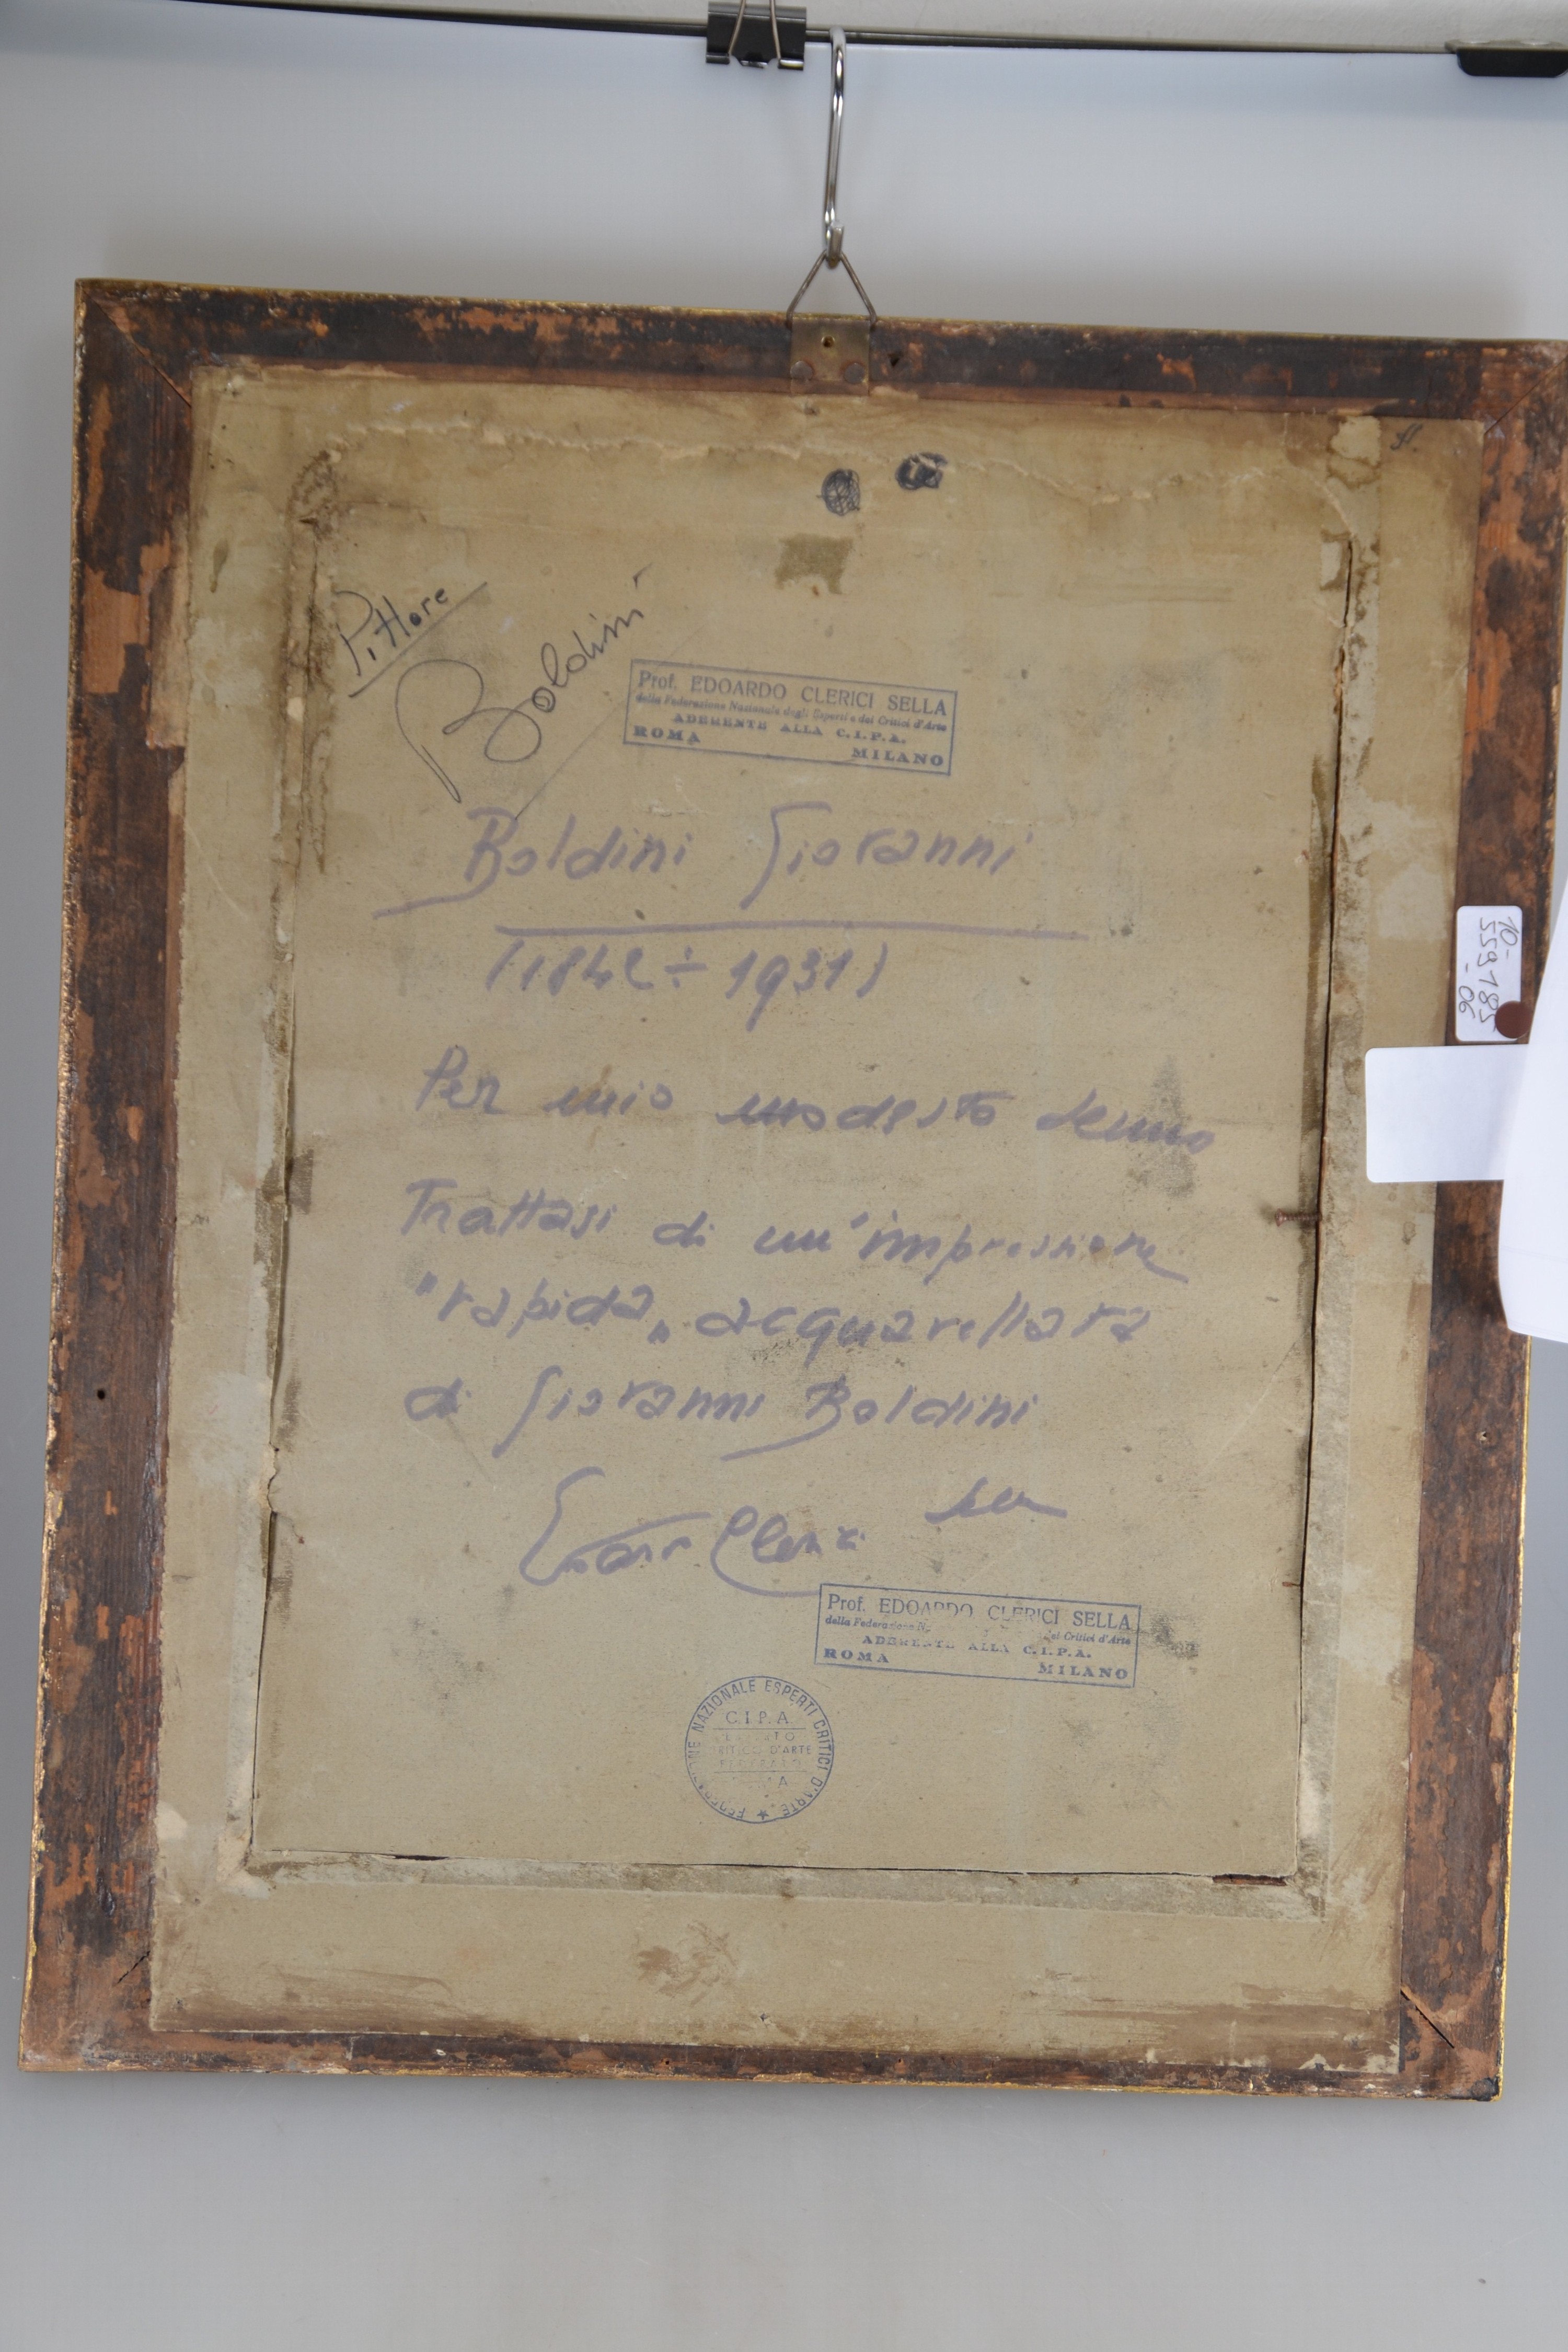 Pittore
Boldini
Prof. EDOARDO CLERICI SELLA
della Federazione Nazionale degli Esperti e dei Critici d'Arte
ADERENTE ALLA C.I.P.A.
ROMA MILANO
Boldini Giovanni
(1842 ÷ 1931)
Per mio modesto
Trattasi di un'impressione
"rapida" acquarellata
di Giovanni Boldini
Clerici Sella
Prof. EDOARDO CLERICI SELLA
della Federazione ei Critici d'Arte
ADERENTE ALLA C.I.P.A.
ROMA MILANO
NAZIONALE ESPERTI CRITICI D'ARTE
C.I.P.A
D'ARTE
10-
559185
-06